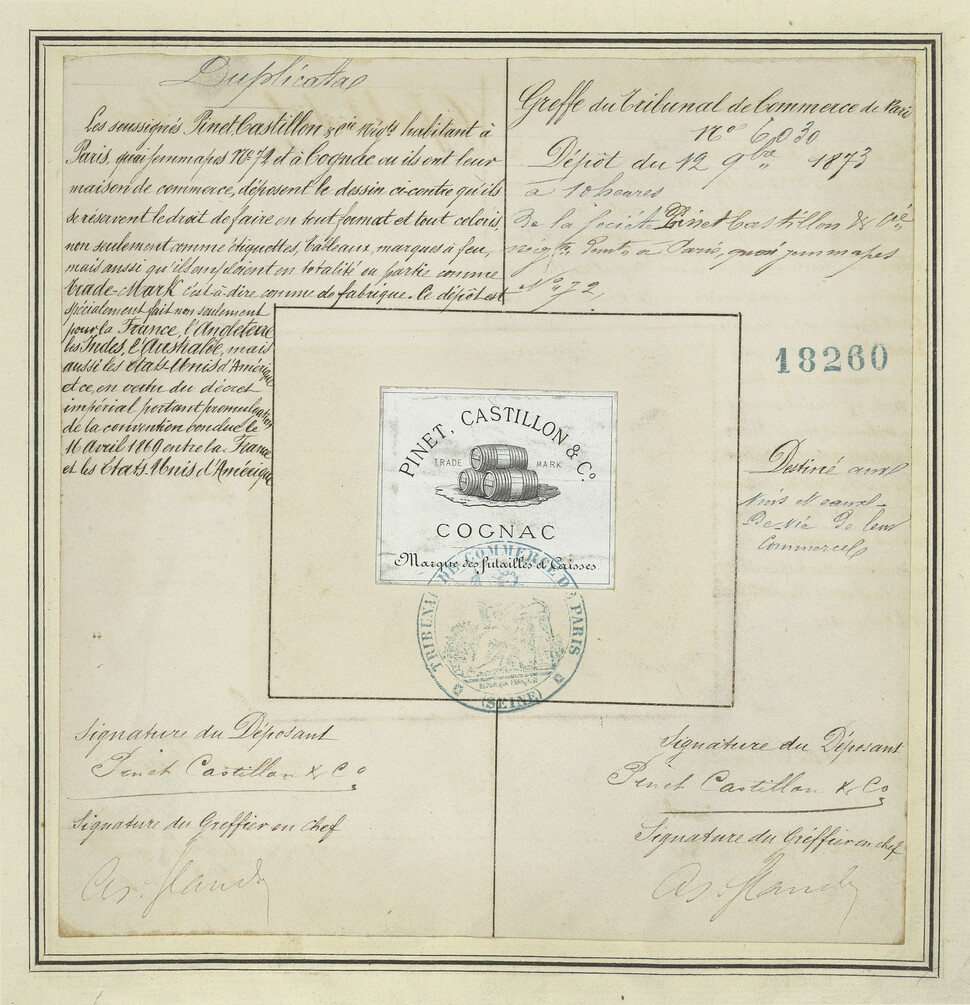 Duplicata
Les soussignés Pinet Castillon & Cie Négts habitant à
Paris, quai Jemmapes No 72 et à Cognac ou ils ont leur
maison de commerce, déposent le dessin ci-contre qu'ils
se réservent le droit de faire en tout format et tout coloris,
non seulement comme étiquettes, tableaux, marques à feu,
mais aussi qu'ils emploient en totalité ou partie comme
Trade-Mark c'est-à-dire comme de fabrique. Ce dépôt est
spécialement fait non seulement
pour la France, l'Angleterre
les Indes, l'Australie, mais
aussi les états-Unis d'Amérique
et ce, en vertu du décret
impérial portant promulgation
de la convention conclue le
16 Avril 1869 entre la France
et les états Unis d'Amérique
Greffe du Tribunal de Commerce de Paris
No 6030
Dépôt du 12 9bre 1873
à 10 heures
De la société Pinet Castillon & Cie
négts à Paris, quai Jemmapes
No 72
18260
Destiné aux
vins et eaux-
De-vie De leur
Commerce
PINET, CASTILLON & Co.
TRADE MARK
COGNAC
Marque des futailles et Caisses
TRIBUNAL DE COMMERCE DE PARIS
RÉPUBLIQUE FRANÇAISE
(SEINE)
Signature du Déposant
Pinet Castillon & Co
Signature du Greffier en chef
Signature du Déposant
Pinet Castillon & Co
Signature du Gréffier en chef